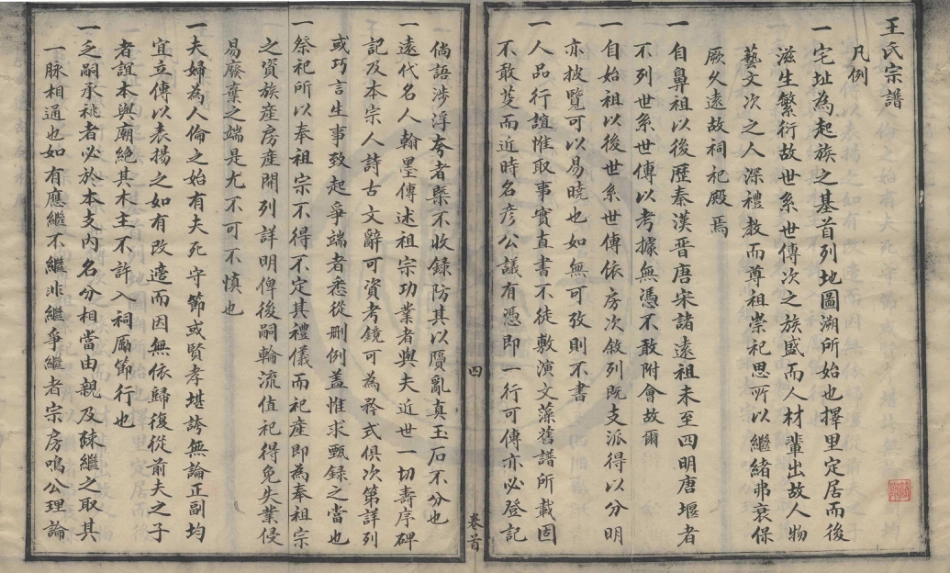 王氏宗譜
凡例
一宅址為起族之基首列地圖溯所始也擇里定居而後
滋生繁衍故世系世傳次之族盛而人材輩出故人物
藝文次之人深禮教而尊祖崇祀思所以繼緒弗衰保
厥久遠故祠祀殿焉
一自鼻祖以後歷秦漢晉唐宋諸遠祖未至四明唐堰者
不列世系世傳以考據無憑不敢附會故爾
一自始祖以後世系世傳依房次敘列既支派得以分明
亦披覽可以易曉也如無可攷則不書
一人品行誼惟取事實直書不徒敷演文藻舊譜所載固
不敢芟而近時名彥公議有憑即一行可傳亦必登記
倘語涉浮夸者槩不收録防其以贋亂真玉石不分也
一遠代名人翰墨傳述祖宗功業者與夫近世一切壽序碑
記及本宗人詩古文辭可資考鏡可為矜式俱次第詳列
或巧言生事致起爭端者悉從刪例蓋惟求甄録之當也
一祭祀所以奉祖宗不得不定其禮儀而祀產即為奉祖宗
之資族產房產開列詳明俾後嗣輪流值祀得免失業侵
易廢棄之端是尤不可不慎也
一夫婦為人倫之始有夫死守節或賢孝堪誇無論正副均
宜立傳以表揚之如有改適而因無依歸復從前夫之子
者誼本與廟絕其木主不許入祠勵節行也
一之嗣承祧者必於本支內名分相當由親及疎繼之取其
一脉相通也如有應繼不繼非繼爭繼者宗房鳴公理論
四
卷首